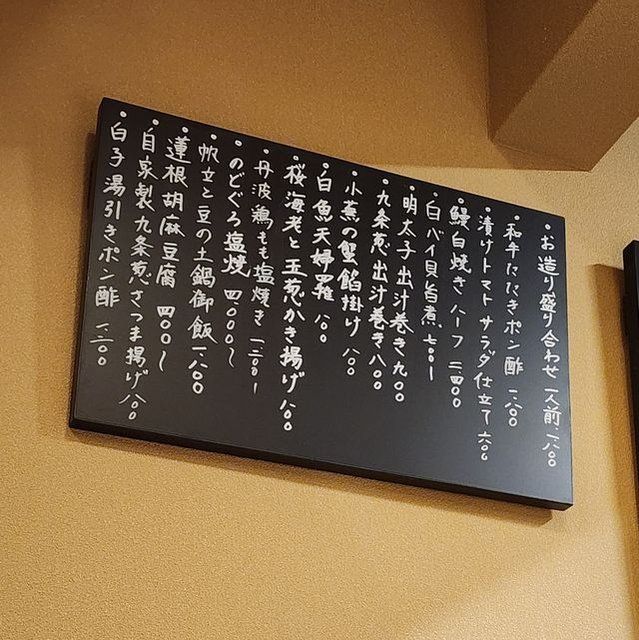 ・お造り盛り合わせ 一人前 一、八〇〇
・和牛たたきポン酢 一、八〇〇
・漬けトマトサラダ仕立て 六〇〇
・鰻白焼き ハーフ 二四〇〇
・白バイ貝旨煮 七〇〇〜
・明太子出汁巻き 九〇〇
・九条葱出汁巻き 八〇〇
・小蕪の蟹餡掛け 八〇〇
・白魚天婦羅 八〇〇
・桜海老と玉葱かき揚げ 八〇〇
・丹波鶏もも塩焼き 一二〇〇〜
・のどぐろ塩焼 四〇〇〇〜
・帆立と豆の土鍋御飯 一、八〇〇
・蓮根胡麻豆腐 四〇〇〜
・自家製九条葱さつま揚げ 八〇〇
・白子湯引きポン酢 一、二〇〇